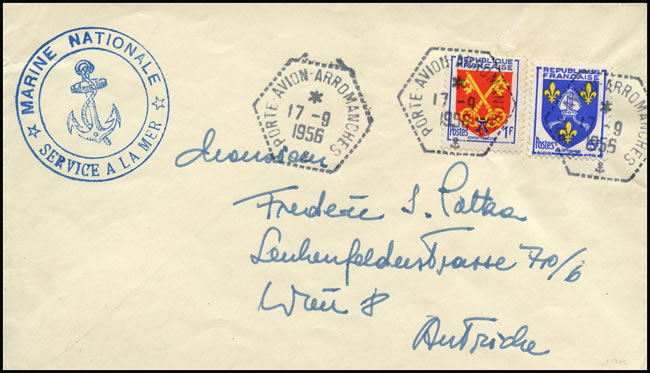 MARINE NATIONALE
SERVICE A LA MER
PORTE-AVION-ARROMANCHES
17 -9
1956
PORTE-AVION-ARROMANCHES
17 -9
1956
REPUBLIQUE
FRANÇAISE
Postes 1F
REPUBLIQUE
FRANÇAISE
Postes
ARROMANCHES
17 -9
1956
Monsieur
Frederic J. Patka
Lerchenfelderstrasse 70/6
Wien 8
Autriche